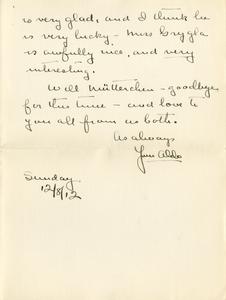 is very glad, and I think he
is very lucky – Miss Grygla
is awfully nice, and very
interesting.
Well Mütterchen – goodbye
for this time – and love to
you all from us both.
As always
Your Aldo
Sunday
12/8/12